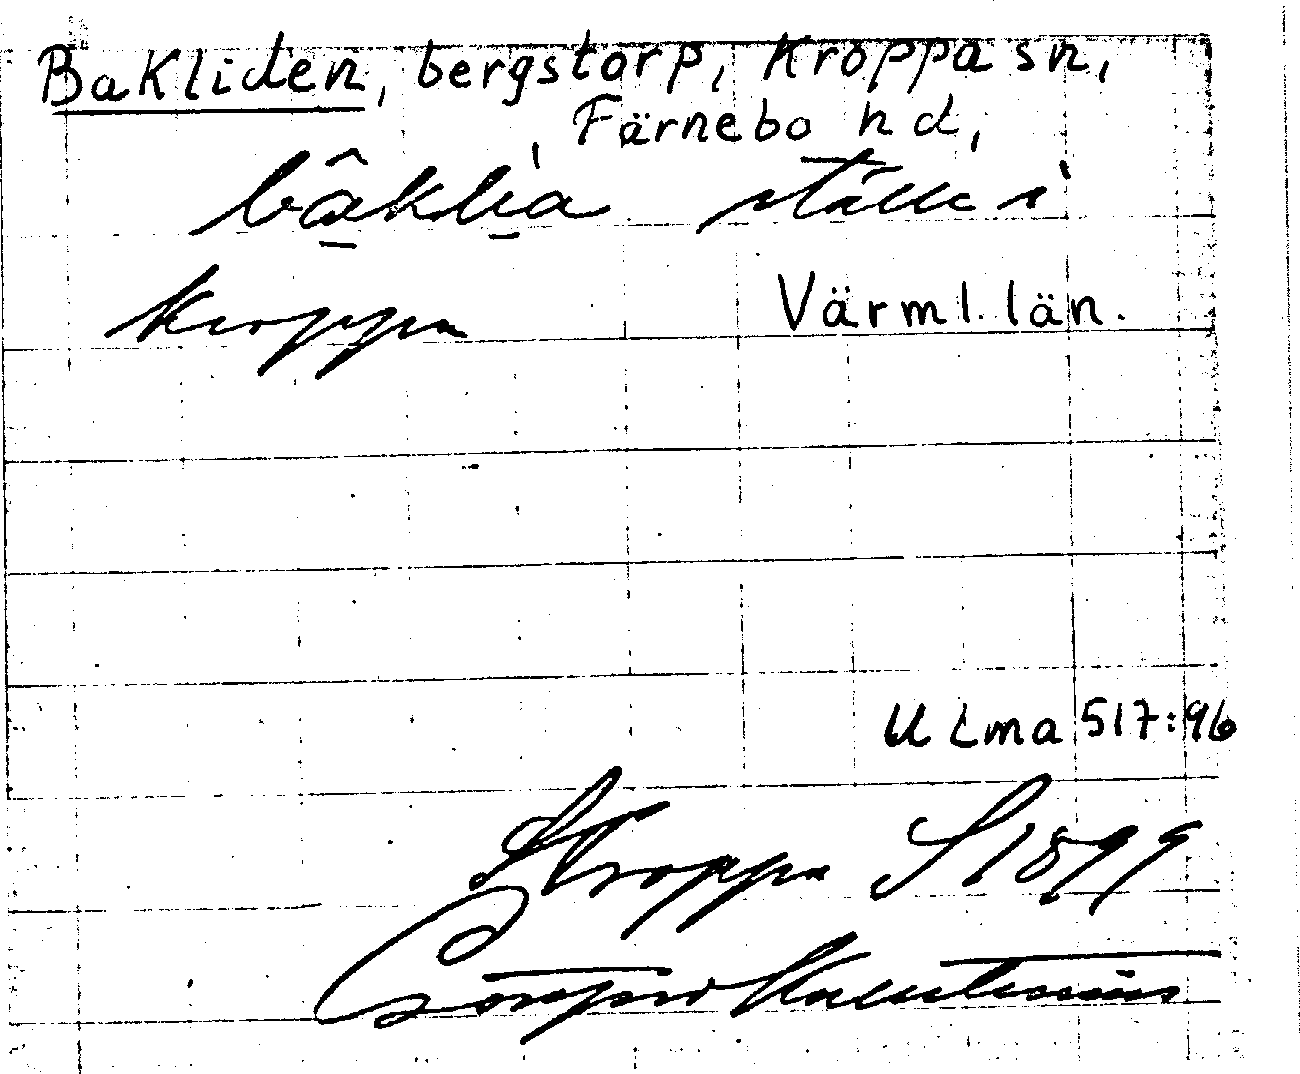 Bakliden, bergstorp, Kroppa sn,
Färnebo hd,
bâklìa ställe i
Kroppa
Värml. län.
ULma 517:96
Kroppa S 1899